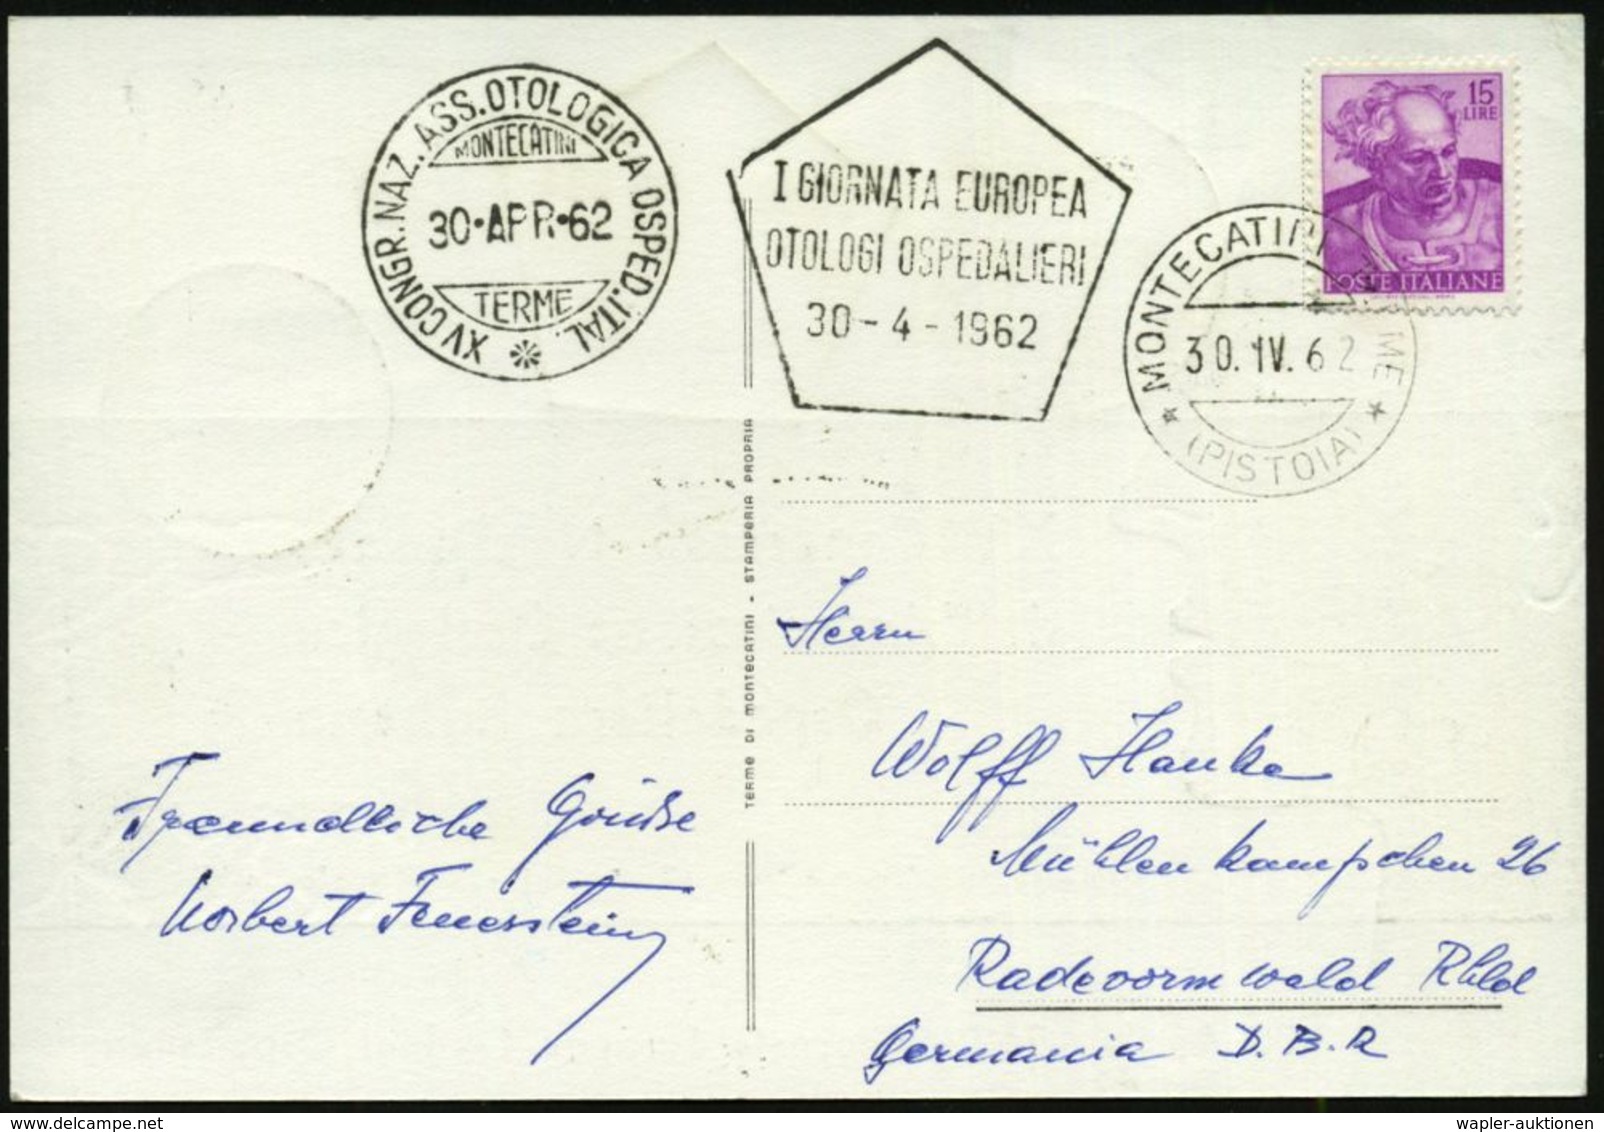 XV CONGR. NAZ. ASS. OTOLOGICA OSPED. ITAL.
MONTECATINI
30•APR•62
TERME
I GIORNATA EUROPEA
OTOLOGI OSPEDALIERI
30-4-1962
15
LIRE
POSTE ITALIANE
MONTECATINI TERME
30.IV.62
(PISTOIA)
TERME DI MONTECATINI - STAMPERIA PROPRIA
Herrn
Wolff Hanke
Mühlenkampchen 26
Radevormwald Rhld
Germania D.B.R
Freundliche Grüsse
Norbert Feuerstein
wapler-auktionen